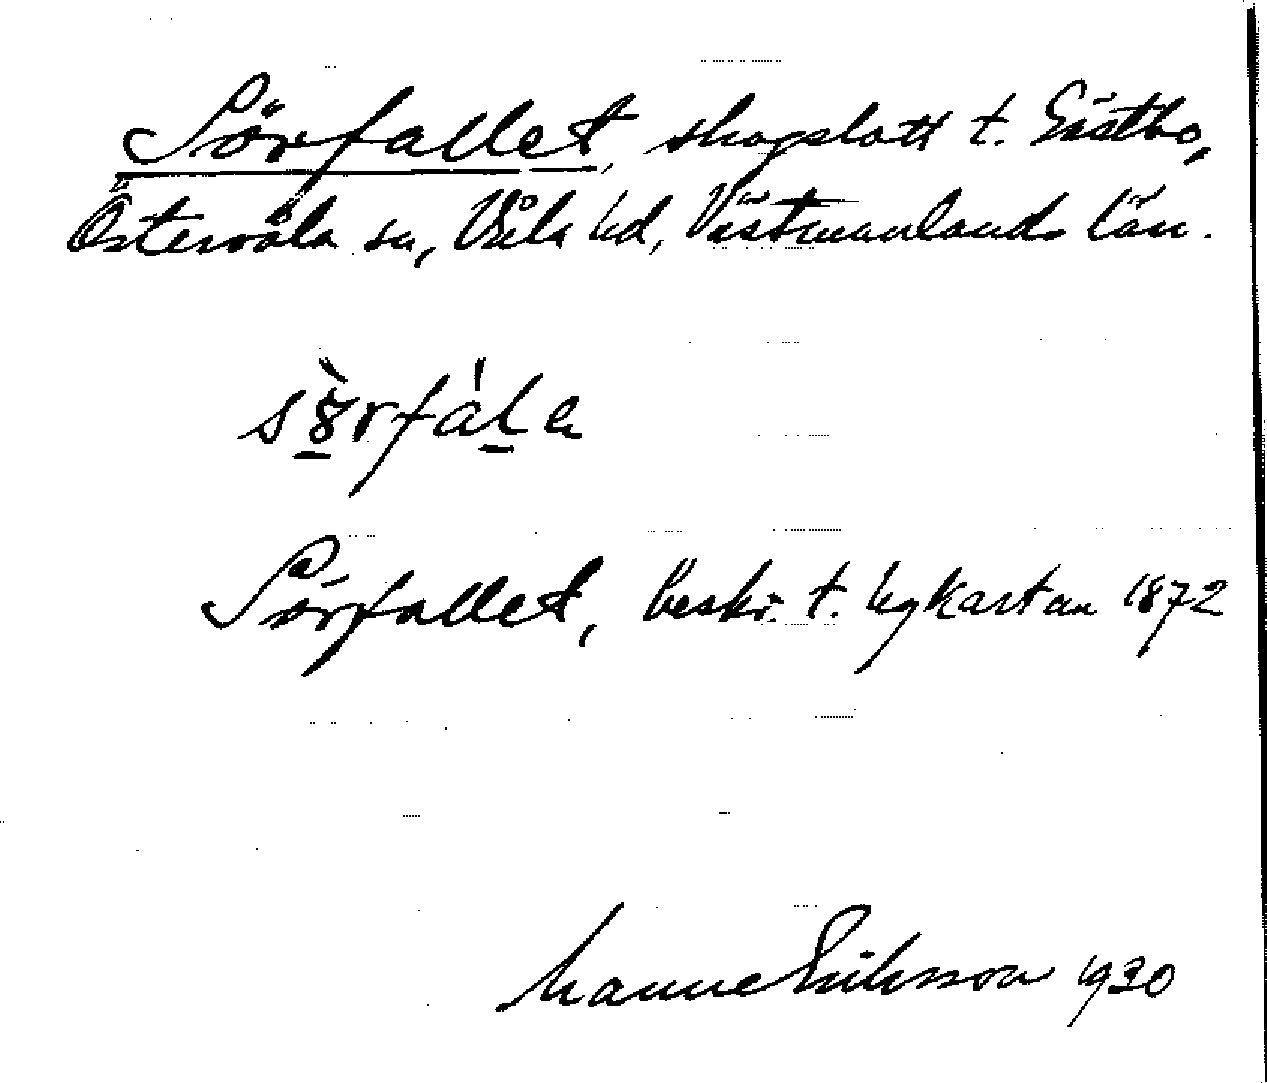 Sörfallet, skogslott t. Gästbo,
Östervåla sn, Våla hd, Västmanlands län.
Sörfallet, beskr. t. hgkartan 1872
Manne Eriksson 1930